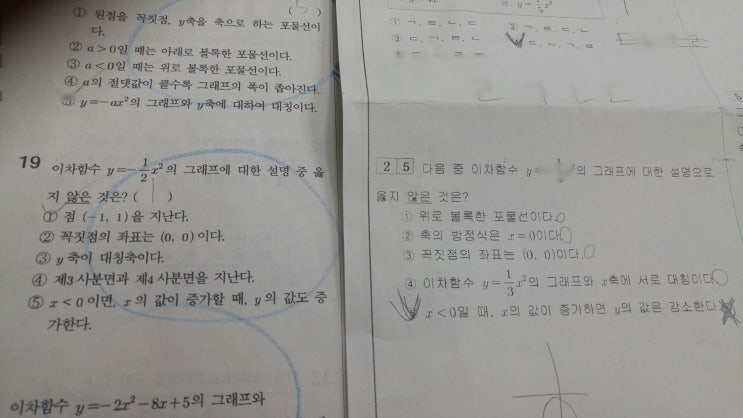 ① 원점을 꼭짓점, y축을 축으로 하는 포물선이
다.
② a>0일 때는 아래로 볼록한 포물선이다.
③ a<0일 때는 위로 볼록한 포물선이다.
④ a의 절댓값이 클수록 그래프의 폭이 좁아진다.
⑤ y=-ax²의 그래프와 y축에 대하여 대칭이다.
19 이차함수 y=-1/2x²의 그래프에 대한 설명 중 옳
지 않은 것은? ( )
① 점 (-1, 1)을 지난다.
② 꼭짓점의 좌표는 (0, 0)이다.
③ y축이 대칭축이다.
④ 제3사분면과 제4사분면을 지난다.
⑤ x<0이면, x의 값이 증가할 때, y의 값도 증
가한다.
이차함수 y=-2x²-8x+5의 그래프와
① ㄱ, ㄹ, ㄴ, ㄷ
② ㄱ, ㄹ, ㄷ, ㄴ
③ ㄷ, ㄱ, ㄹ, ㄴ
ㄷ, ㄴ, ㄱ, ㄹ
25 다음 중 이차함수 의 그래프에 대한 설명으로
옳지 않은 것은?
① 위로 볼록한 포물선이다.
② 축의 방정식은 x=0이다.
③ 꼭짓점의 좌표는 (0, 0)이다.
④ 이차함수 y=1/3x²의 그래프와 x축에 서로 대칭이다.
x<0일 때, x의 값이 증가하면 y의 값은 감소한다.